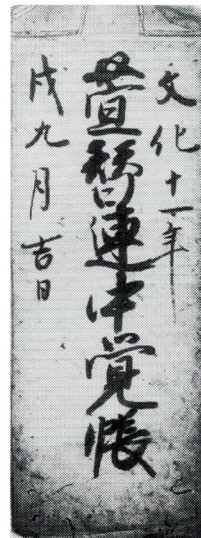 文化十一年
萱連中覚帳
戌九月吉日